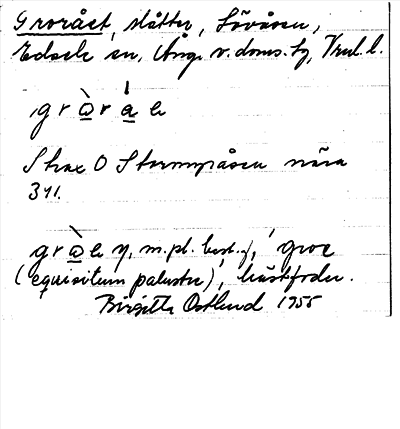 Groråst, slåtter, Lövåsen,
Edsele sn, Ång. v. doms. tg, Vnl. l.
gròråe
Strax O Stormyråsen nära
341.
gròe n, m.pl. best. f., groe
(equisitum palustre), hästfoder.
Birgitta Östlund 1955